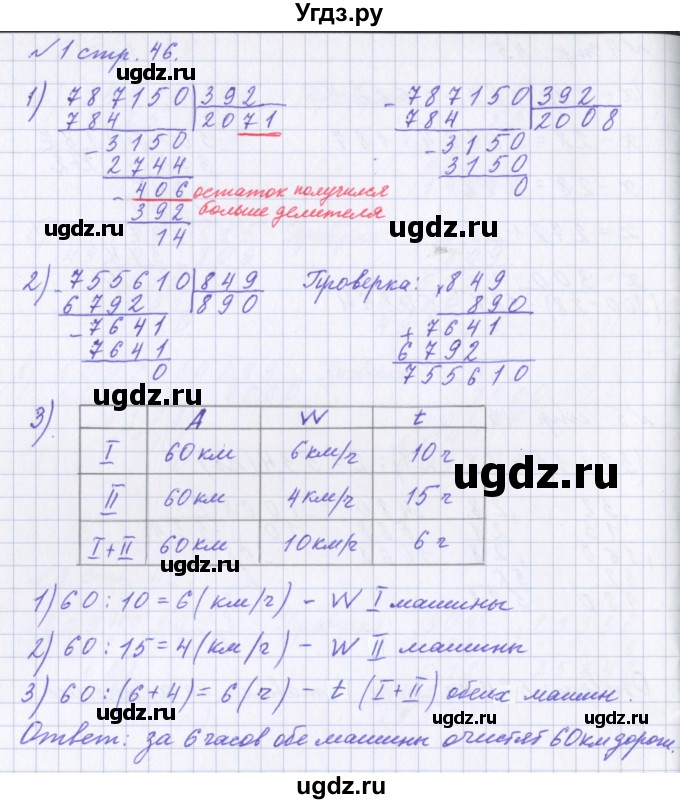 Угдз.ру
№1 стр. 46.
ugdz.ru
ugdz.ru
1) 787150 392
784 2071
- 3150
2744
- 406 остаток получился
392 больше делителя
14
ugdz.ru
- 787150 392
784 2008
- 3150
3150
0
ugdz.ru
2) - 755610 849
6792 890
- 7641
7641
0
ugdz.ru
Проверка: x 849
890
+ 7641
6792
755610
ugdz.ru
3) A W t
I 60 км 6 км/ч 10 ч
II 60 км 4 км/ч 15 ч
I+II 60 км 10 км/ч 6 ч
ugdz.ru
ugdz.ru
1) 60 : 10 = 6 (км/ч) - W I машины
ugdz.ru
2) 60 : 15 = 4 (км/ч) - W II машины
ugdz.ru
3) 60 : (6+4) = 6 (ч) - t (I+II) обеих машин.
ugdz.ru
ugdz.ru
ugdz.ru
Ответ: за 6 часов обе машины очистят 60 км дороги.
ugdz.ru